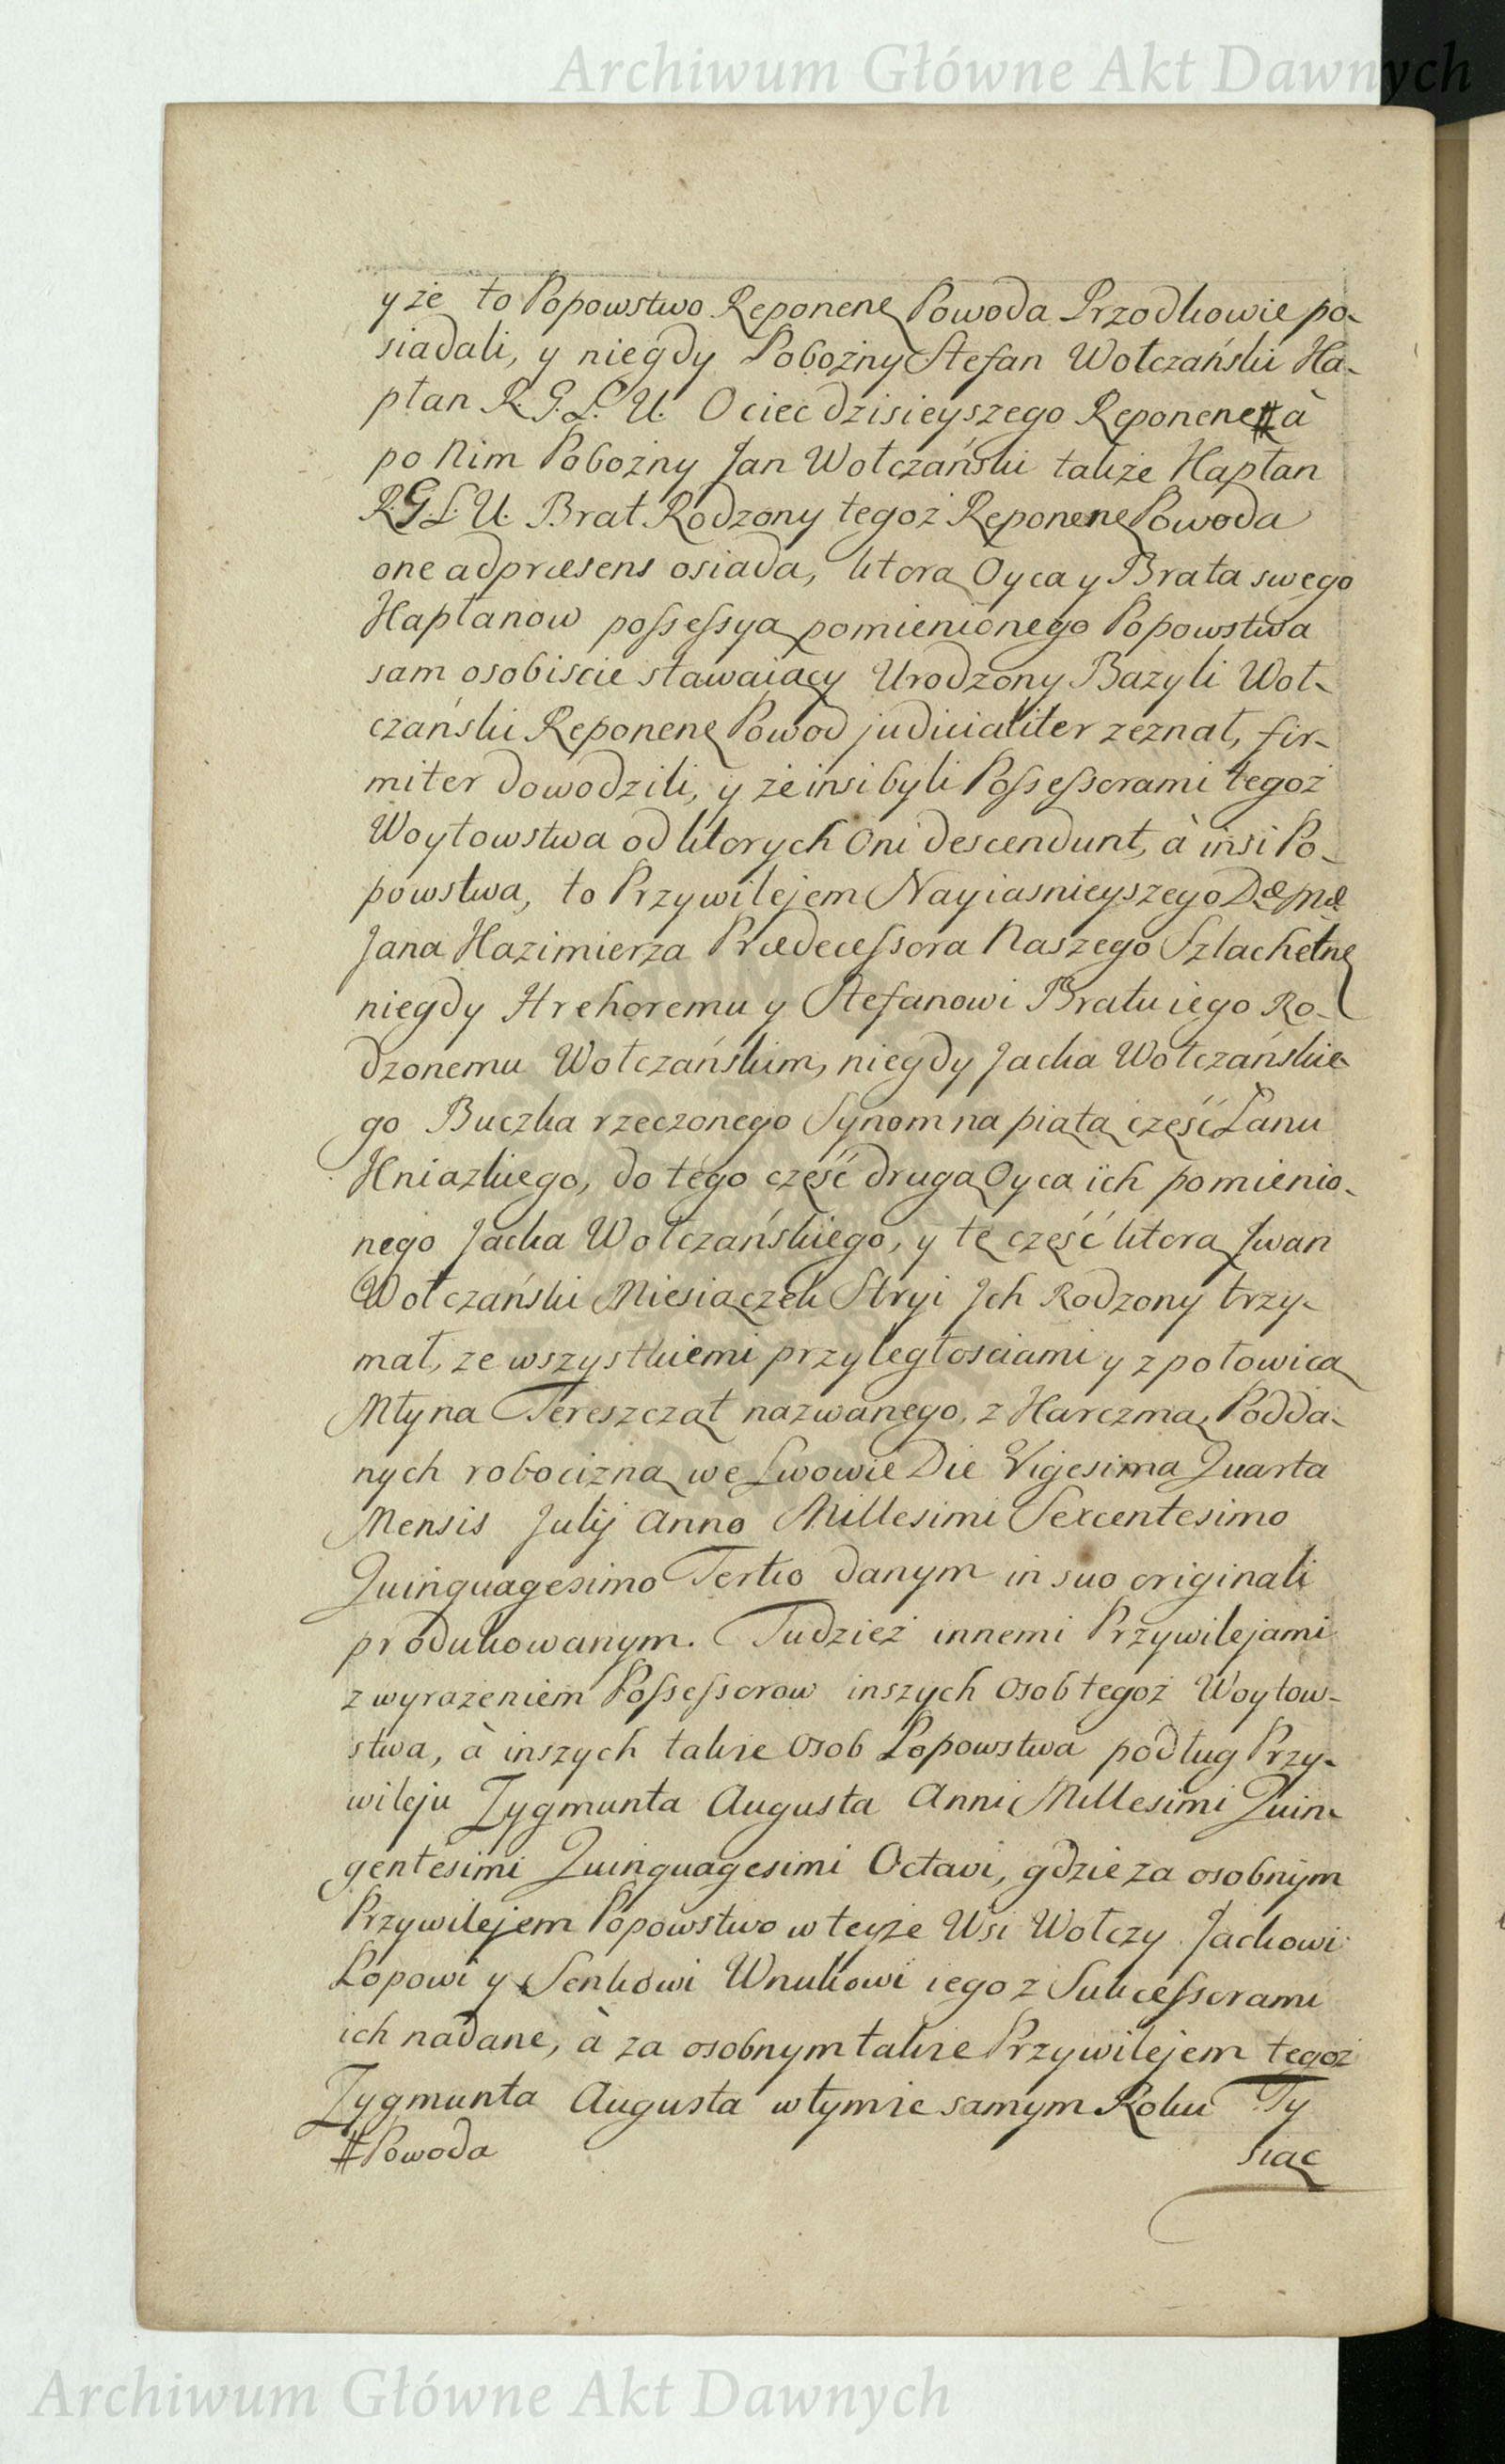 Archiwum Główne Akt Dawnych
y że to Popowstwo Reponenę Powoda Przodkowie po-
siadali, y niegdy Pobożny Stefan Wołczański Ka-
płan R. G. L. U. Ociec dzisieyszego Reponenę # à
po Nim Pobożny Jan Wołczański także Kapłan
R.G.L.U. Brat Rodzony tegoż Reponenę Powoda
one adpræsens osiada, ktorą Oyca y Brata swego
Kapłanow possessyą pomienionego Popowstwa
sam osobiscie stawaiący Urodzony Bazyli Woł-
czański Reponenę Powod judicialiter zeznał, fir-
miter dowodzili, y że insi byli Possessorami tegoż
Woytowstwa od ktorych Oni descendunt, à insi Po-
powstwa, to Przywilejem Nayiasnieyszego
Jana Kazimierza Prædecessora Naszego Szlachetnę
niegdy Hrehoremu y Stefanowi Bratu iego Ro-
dzonemu Wołczańskim, niegdy Jacka Wołczańskie-
go Buczka rzeczonego Synom na piątą część Łanu
Kniazkiego, do tego część drugą Oyca ich pomienio-
nego Jacka Wołczańskiego, y tę część ktorą Jwan
Wołczański Miesiączek Stryi Jch Rodzony trzy-
mał, ze wszystkiemi przyległosciami y z połowicą
Młyna Tereszcząt nazwanego, z Karczmą, Podda-
nych robocizną we Lwowie Die Vigesima Quarta
Mensis Julij Anno Millesimi Sexcentesimo
Quinquagesimo Tertio danym in suo originali
produkowanym. Tudzież innemi Przywilejami
z wyrażeniem Possessorow inszych Osob tegoż Woytow-
stwa, à inszych także Osob Popowstwa podług Przy-
wileju Zygmunta Augusta Anni Millesimi Quin-
gentesimi Quinquagesimi Octavi, gdzie za osobnym
Przywilejem Popowstwo w teyże Wsi Wołczy Jackowi
Popowi y Senkowi Wnukowi iego z Sukcessorami
ich nadane, à za osobnym także Przywilejem tegoż
Zygmunta Augusta w tymże samym Roku Ty
# Powoda siąc
Archiwum Główne Akt Dawnych